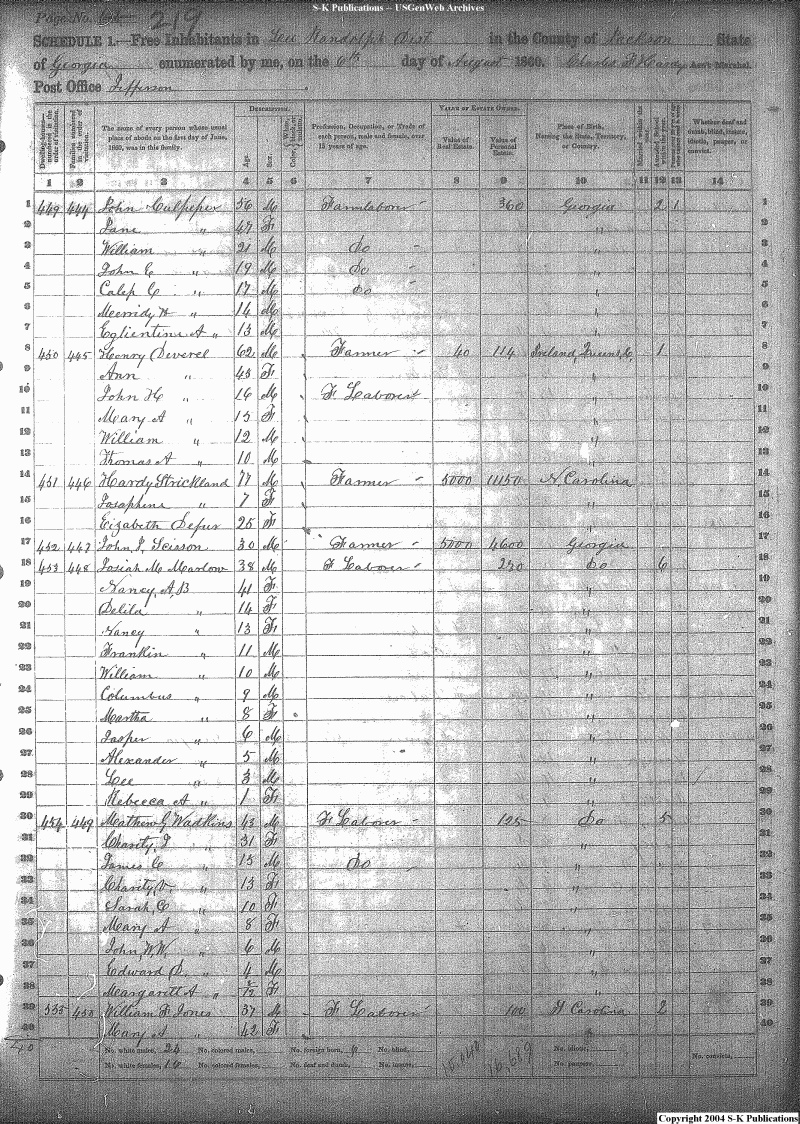 S-K Publications -- USGenWeb Archives
Page No. 219
SCHEDULE 1.—Free Inhabitants in Lee Randolph Dist in the County of Jackson State
of Georgia enumerated by me, on the 6th day of August 1860. Charles F. Ass't Marshal.
Post Office Jefferson
Dwelling-houses—numbered in the order of visitation.
Families numbered in the order of visitation.
The name of every person whose usual place of abode on the first day of June, 1860, was in this family.
DESCRIPTION.
Age.
Sex.
Color, White, black, or mulatto.
Profession, Occupation, or Trade of each person, male and female, over 15 years of age.
VALUE OF ESTATE OWNED.
Value of Real Estate.
Value of Personal Estate.
Place of Birth, Naming the State, Territory, or Country.
Married within the year.
Attended School within the year.
Whether deaf and dumb, blind, insane, idiotic, pauper, or convict.
1 2 3 4 5 6 7 8 9 10 11 12 13 14
1 449 444 John Culpeper 56 M Farmlaborer 360 Georgia 2 1 1
2 Jane " 47 F " 2
3 William " 21 M Do " 3
4 John C " 19 M Do " 4
5 Calep C " 17 M Do " 5
6 Merridy H " 14 M " 6
7 Eglientine A " 13 M " 7
8 450 445 Henry Deverel 62 M Farmer 40 114 Ireland, Queens Co 1 8
9 Ann " 43 F " 9
10 John H " 16 M F Laborer " 10
11 Mary A " 15 F " 11
12 William " 12 M " 12
13 Thomas A " 10 M " 13
14 451 446 Hardy Strickland 77 M Farmer 5000 11150 N Carolina 14
15 Josaphine " 7 F " 15
16 Eizabeth 25 F " 16
17 452 447 John J. Scisson 30 M Farmer 5000 4600 Georgia 17
18 453 448 Josiah M Marlow 38 M F Laborer 220 Do 6 18
19 Nancy, A, B 41 F " 19
20 Delila " 14 F " 20
21 Nancy " 13 F " 21
22 Franklin " 11 M " 22
23 William " 10 M " 23
24 Columbus " 9 M " 24
25 Martha " 8 F " 25
26 Jasper " 6 M " 26
27 Alexander " 5 M " 27
28 Lee " 3 M " 28
29 Rebecca A " 1 F " 29
30 454 449 Mathew G Wadkins 43 M F Laborer 125 Do 5 30
31 Charity, J " 31 F " 31
32 James C " 15 M Do " 32
33 Charity, V. " 13 F " 33
34 Sarah, C " 10 F " 34
35 Mary A " 8 F " 35
36 John, W, W, " 6 M " 36
37 Edward D. " 4 M " 37
38 Margarett A " F " 38
39 535 450 William F Jones 37 M F Laborer 100 N Carolina 2 39
40 Mary A " 42 F " 40
No. white males, 24 No. colored males, No. foreign born, No. blind, 10,040 16,669 No. idiotic, No. convicts,
No. white females, 16 No. colored females, No. deaf and dumb, No. insane, No. paupers,
Copyright 2004 S-K Publications